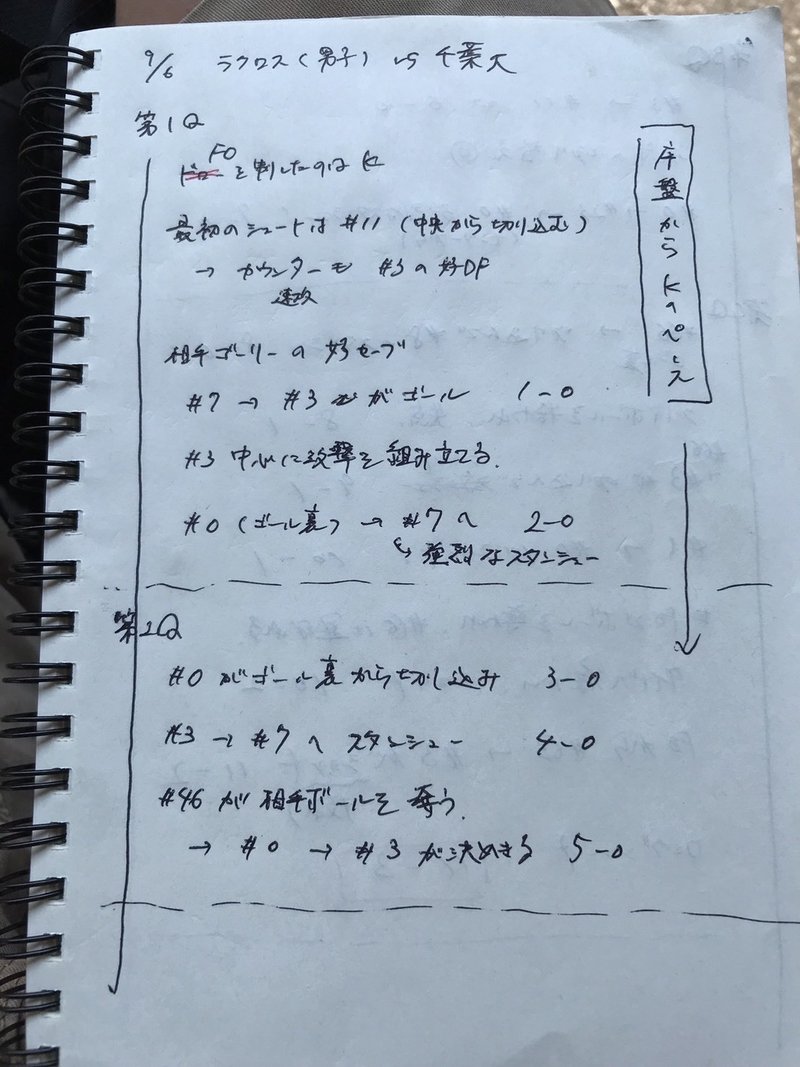 9/6 ラクロス(男子) vs 千葉大
第1Q
FO
ドローを制したのはK
最初のシュートは#11(中央から切り込む)
→ カウンターも #3の好DF
速攻
相手ゴーリーの好セーブ
#7 → #3 がゴール 1-0
#3 中心に攻撃を組み立てる.
#0 (ゴール裏) → #7へ 2-0
↳ 強烈なスタンシュー
序盤からKのペース
第2Q
#0がゴール裏から切り込み 3-0
#3 → #7へ スタンシュー 4-0
#46が相手ボールを奪う.
→ #0 → #3が決めきる 5-0